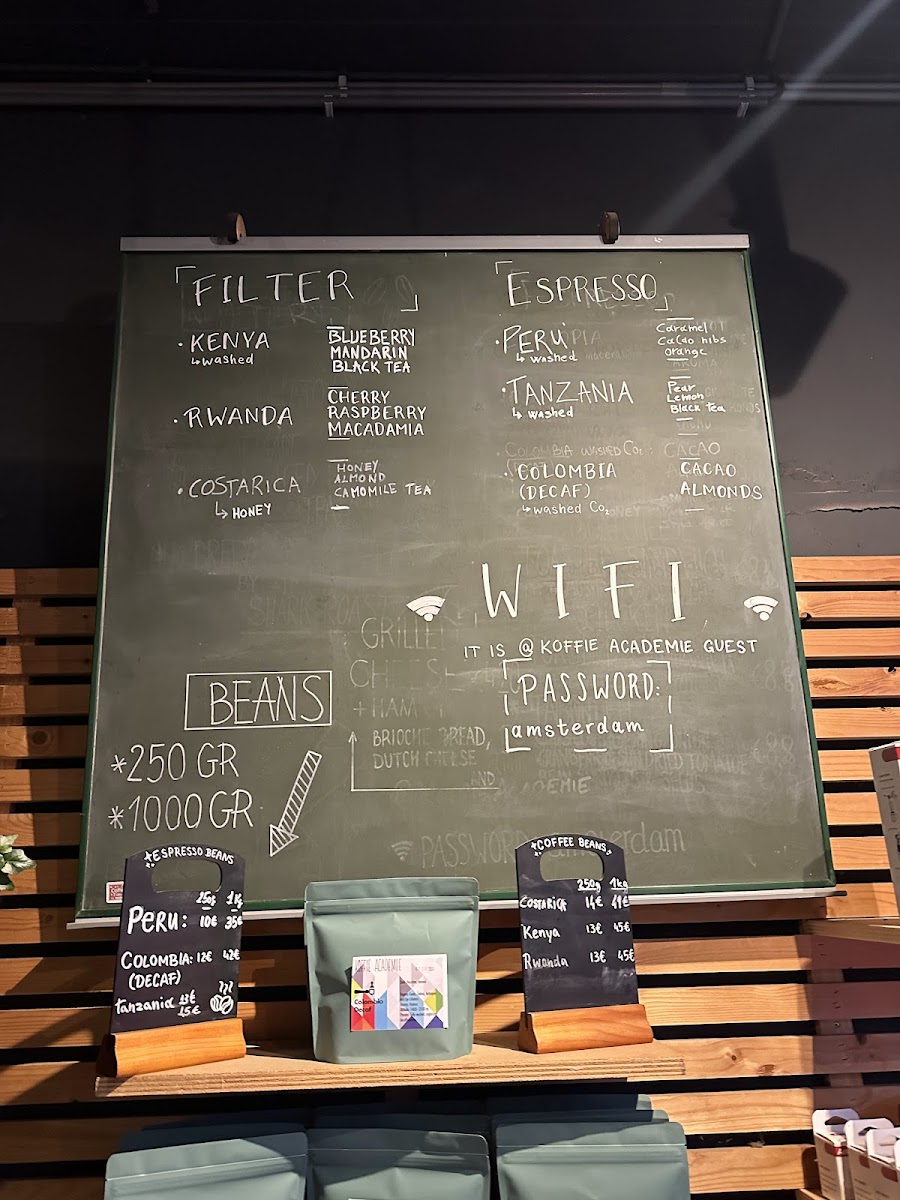 FILTER
• KENYA
↳ washed
BLUEBERRY
MANDARIN
BLACK TEA
• RWANDA
CHERRY
RASPBERRY
MACADAMIA
• COSTARICA
↳ HONEY
HONEY
ALMOND
CAMOMILE TEA
ESPRESSO
• PERU
↳ washed
Caramel
Cacao nibs
orange
• TANZANIA
↳ washed
Pear
Lemon
Black tea
COLOMBIA WASHED CO₂ : CACAO
• COLOMBIA
(DECAF)
↳ washed Co₂
CACAO
ALMONDS
WIFI
IT IS @ KOFFIE ACADEMIE GUEST
PASSWORD:
amsterdam
GRILLED
CHEESE
+ HAM
BRIOCHE BREAD,
DUTCH CHEESE
PASSWORD: amsterdam
BEANS
*250 GR
*1000 GR
ESPRESSO BEANS
250g 1kg
PERU: 10€ 35€
COLOMBIA: 12€ 42€
(DECAF)
Tanzania
COFFEE BEANS
250g 1kg
COSTARICA 14€ 49€
Kenya 13€ 45€
Rwanda 13€ 45€
KOFFIE ACADEMIE
Colombia
Decaf